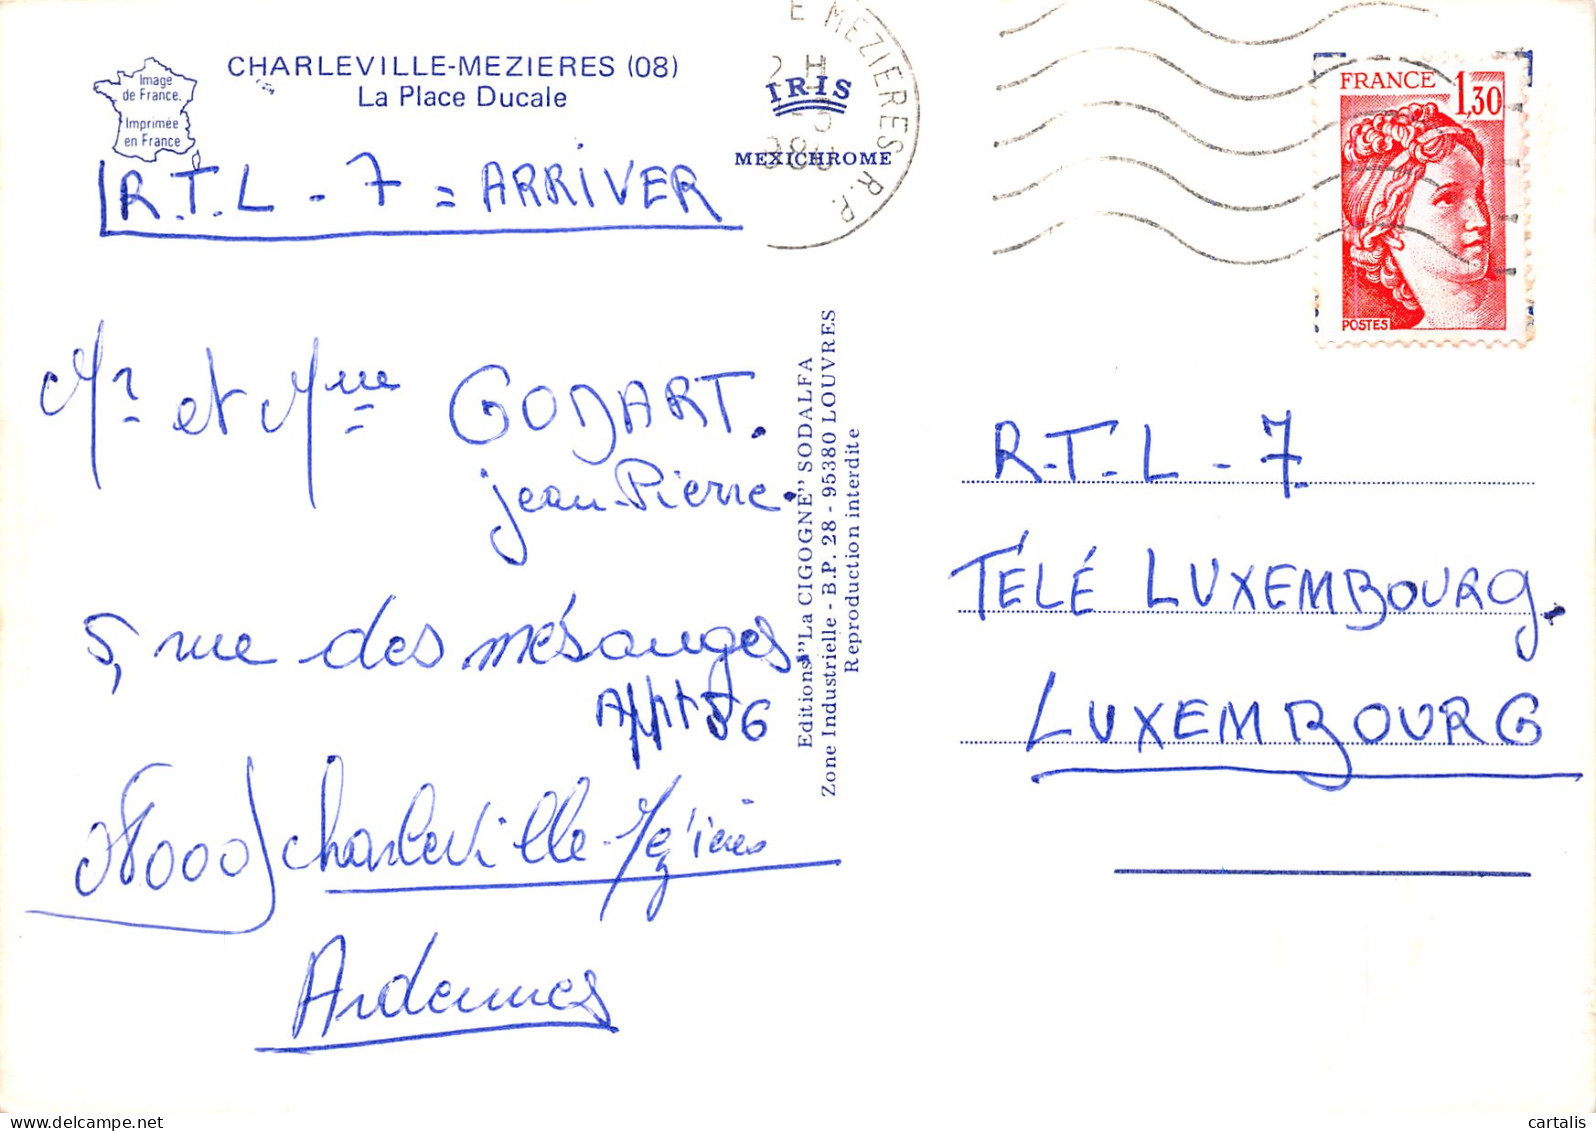 CHARLEVILLE-MEZIERES (08)
La Place Ducale
Image
de France.
Imprimée
en France
IRIS
MEXICHROME
E MEZIERES R.P.
FRANCE 1,30
POSTES
R.T.L - 7 = ARRIVER
Mr et Mme GODART.
jean-Pierre.
5, rue des mésanges.
Appt 56
08000 Charleville-Mézières
Ardennes
Editions "La CIGOGNE" SODALFA
Zone Industrielle - B.P. 28 - 95380 LOUVRES
Reproduction interdite
R-T-L-7
TÉLÉ LUXEMBOURG.
LUXEMBOURG
cartalis